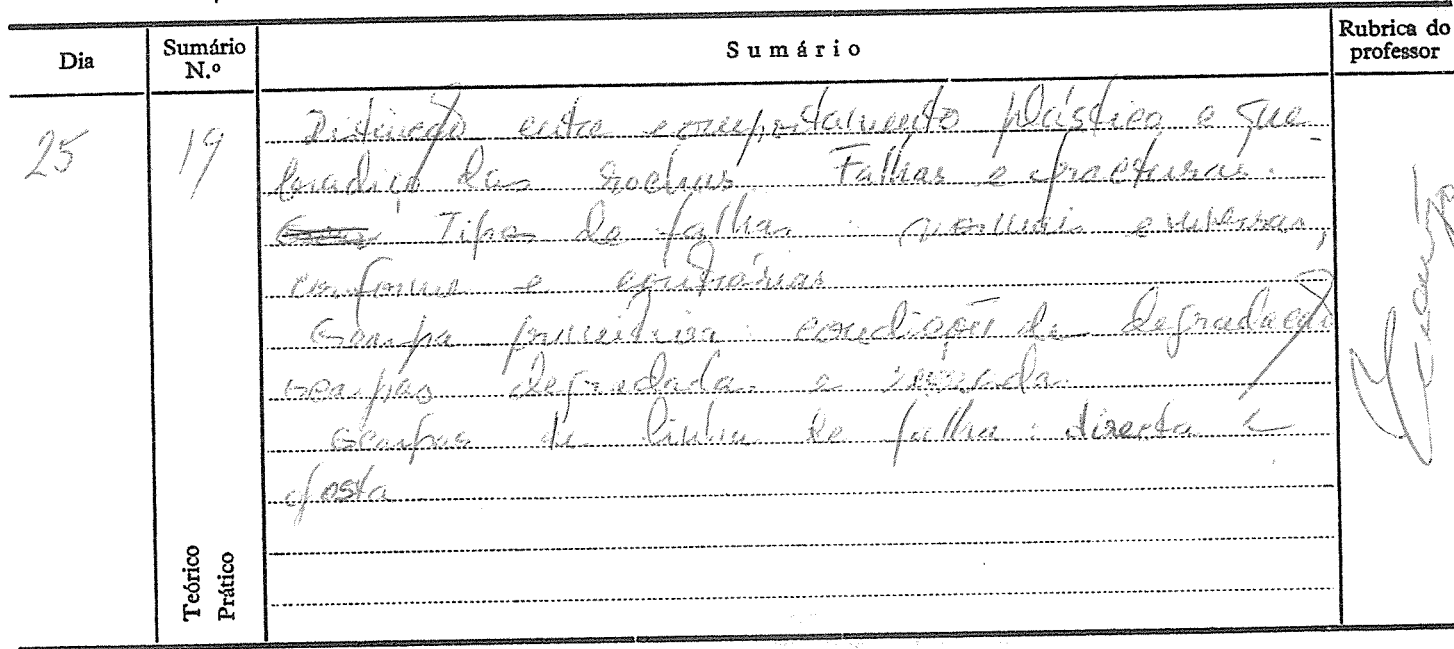 Dia Sumário N.º Sumário Rubrica do professor
25 19 Distinção entre comportamento plástico e que-
bradiço das rochas. Falhas e fracturas.
Tipos de falhas: normais e inversas,
conformes e contrárias
Escarpa primitiva: condições de degradação
escarpas degradada e
Escarpas de linha de falha: directa e
oposta
Teórico
Prático